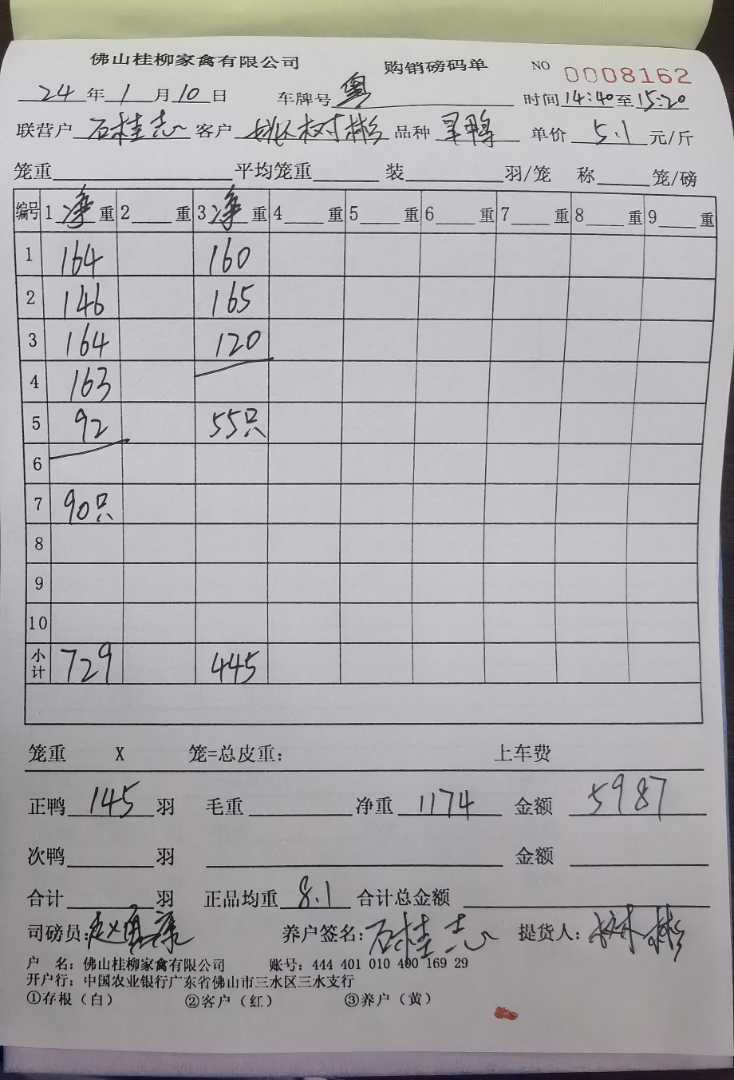 佛山桂柳家禽有限公司 购销磅码单 NO 0008162
24年1月10日 车牌号 粤 时间14:40至15:20
联营户 石桂志 客户 姚树彬 品种 单价 5.1 元/斤
笼重 平均笼重 装 羽/笼 称 笼/磅
编号 1 净 重 2 重 3 净 重 4 重 5 重 6 重 7 重 8 重 9 重
1 164 160
2 146 165
3 164 120
4 163
5 92 55只
6
7 90只
8
9
10
小计 729 445
笼重 X 笼=总皮重: 上车费
正鸭 145 羽 毛重 净重 1174 金额 5987
次鸭 羽 金额
合计 羽 正品均重 8.1 合计总金额
司磅员: 养户签名: 石桂志 提货人: 树彬
户 名: 佛山桂柳家禽有限公司 账号: 444 401 010 400 169 29
开户行: 中国农业银行广东省佛山市三水区三水支行
①存根(白) ②客户(红) ③养户(黄)